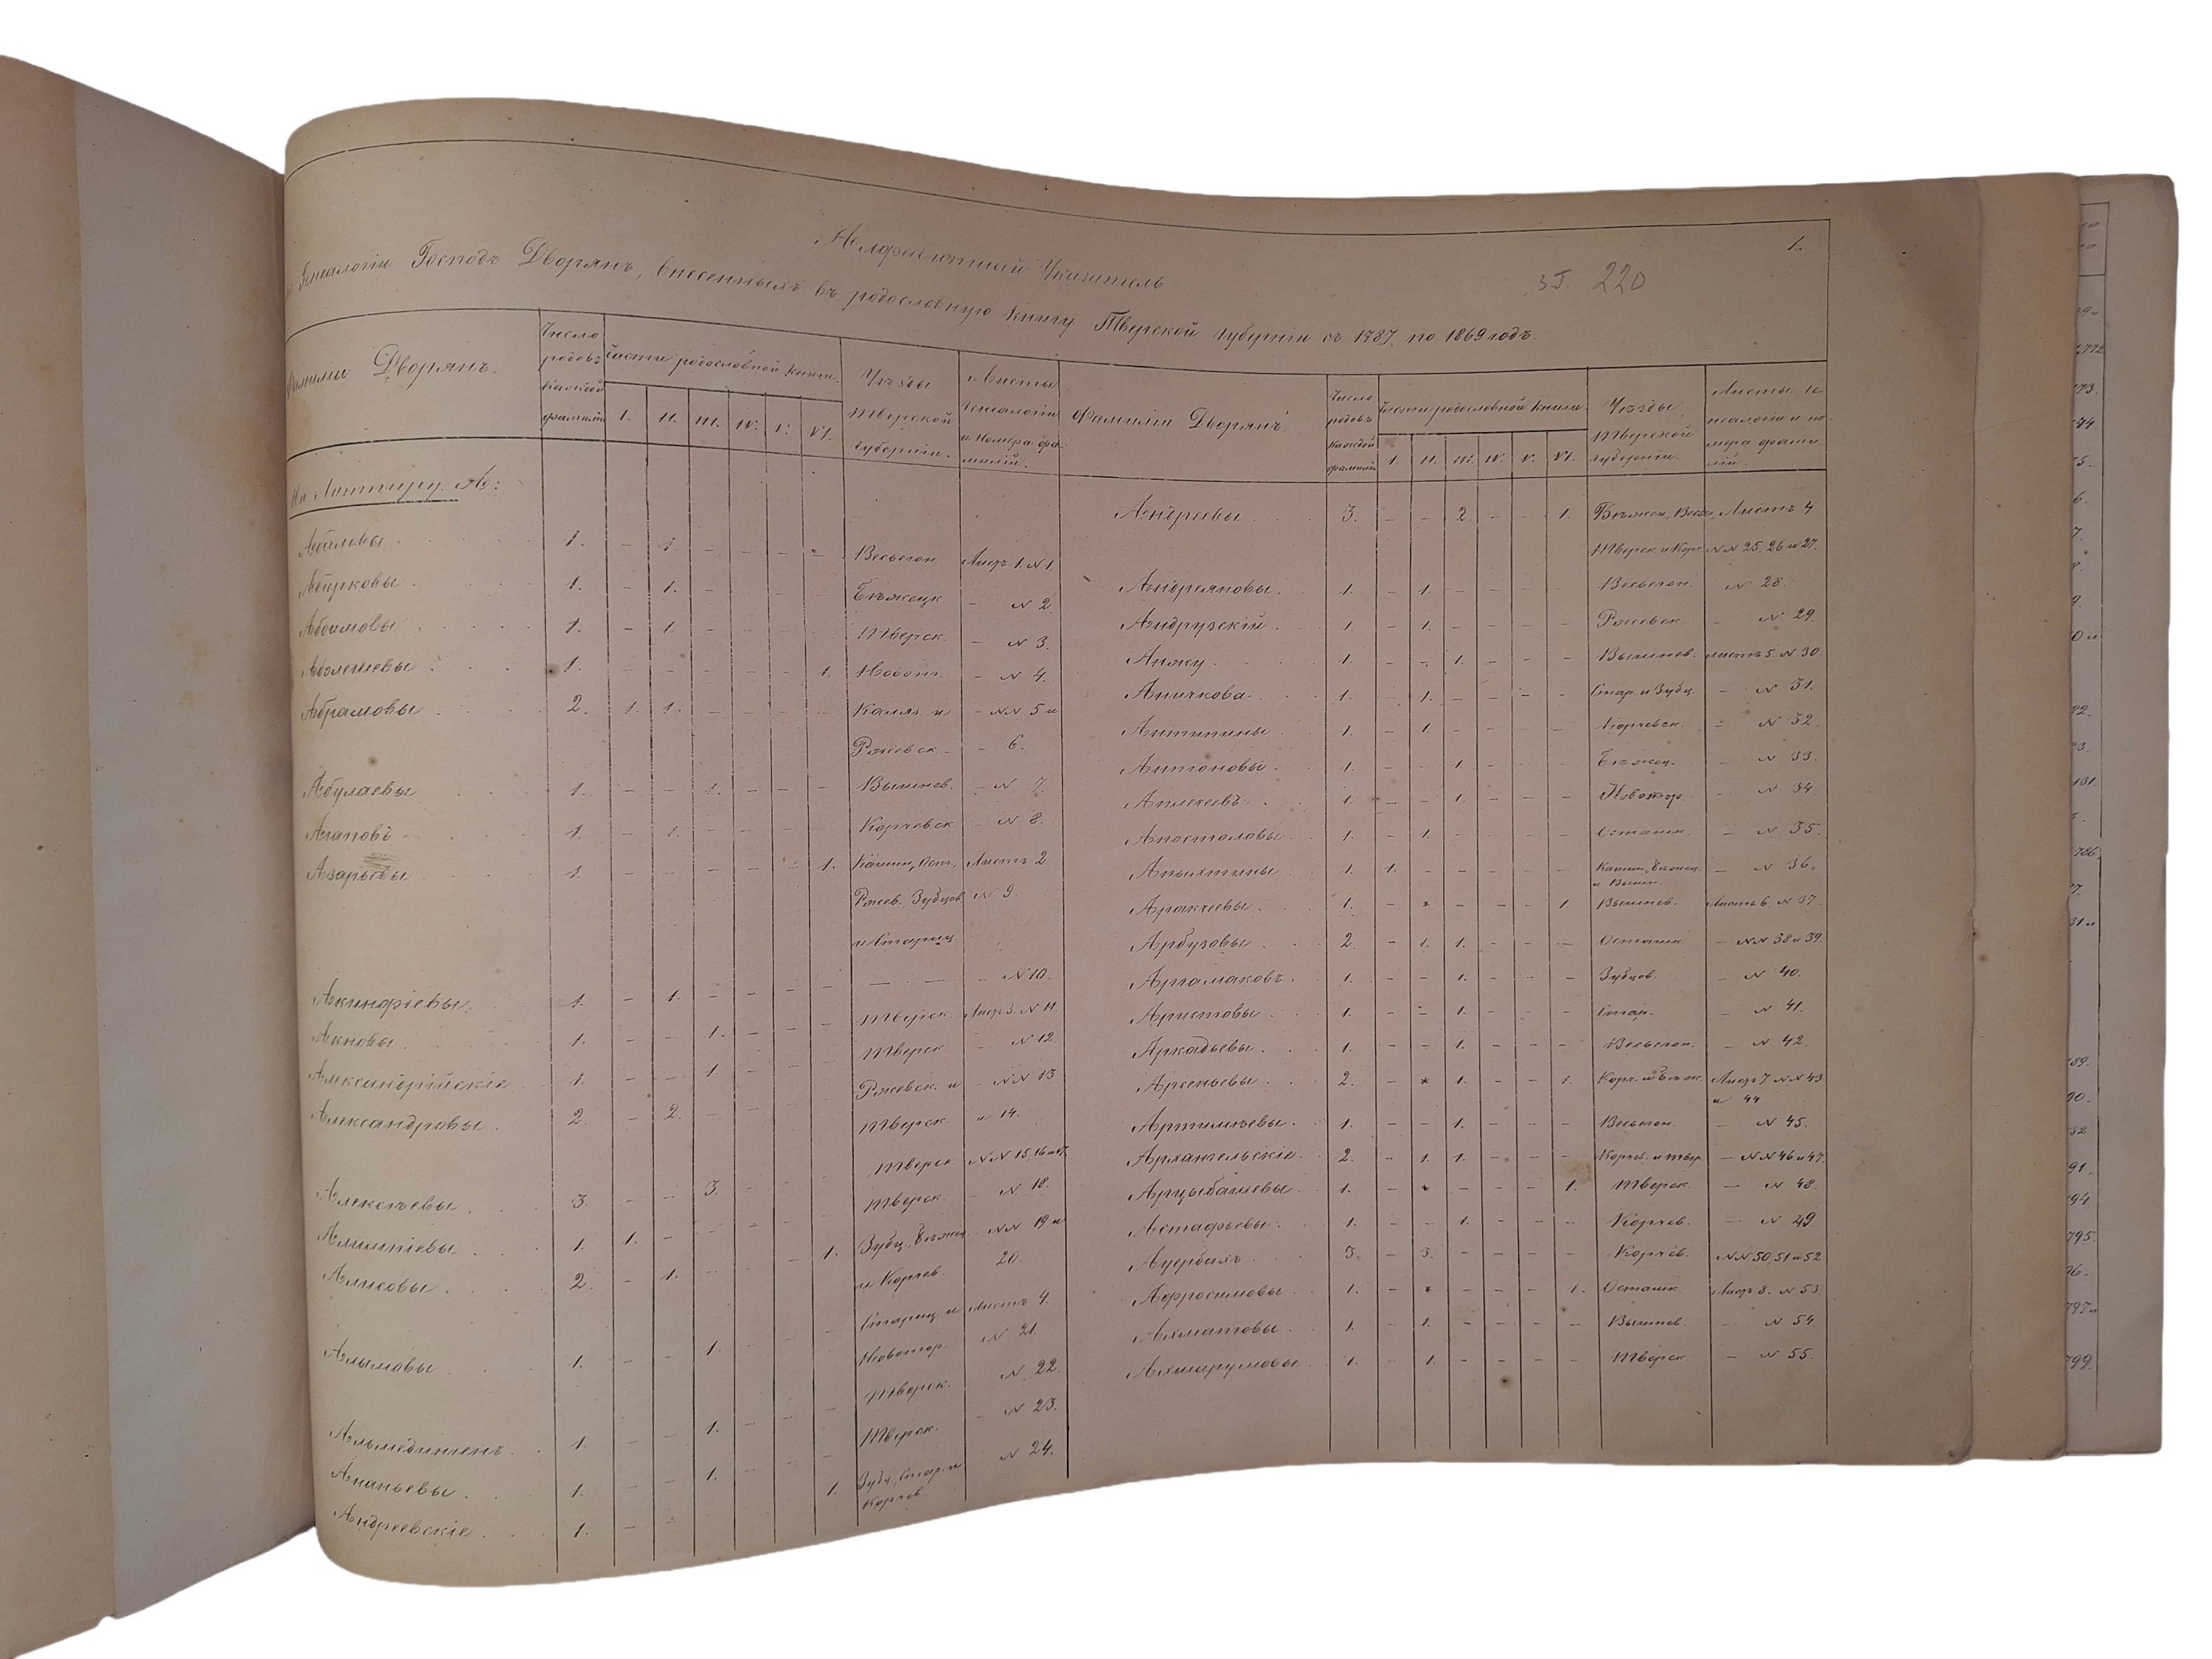 1.
Алфавитный Указатель
3Г. 220
Генеалогіи Господъ Дворянъ, внесенныхъ въ родословную книгу Тверской губерніи съ 1787 по 1869 годъ.
Фамиліи Дворянъ. Число родовъ каждой фамиліи Части родословной книги. I. II. III. IV. V. VI. Уѣзды Тверской губерніи. Листы Генеалогіи и номера фамилій.
Фамиліи Дворянъ. Число родовъ каждой фамиліи Части родословной книги. I. II. III. IV. V. VI. Уѣзды Тверской губерніи. Листы генеалогіи и номера фамилій.
На Литтеру А:
1. – 1. – – – – Весьегон. Лист 1. N 1.
1. – 1. – Бѣжецк. – N 2.
Абоимовы 1. – 1. – Тверск. – N 3.
1. – – – – – 1. Новот. – N 4.
Абрамовы 2. 1. 1. – – – – Каляз. и – NN 5 и
Ржевск. – 6.
Абулаевы 1. – – 1. – – – Вышнев. – N 7.
Агаповъ 1. – 1. – Корчевск – N 8.
Азарьевы 1. – – – – – 1. Кашин, Ост., Листъ 2
Ржев., Зубцов. N 9.
и Стариц.
Акинфіевы. 1. – 1. – – – – – – N 10.
Акновы 1. – – 1. – – – Тверск. Лист 3. N 11.
Александрійскіе 1. – – 1. – – – Тверск – N 12
Александровы. 2. – 2. – – – Ржевск. и – NN 13
Тверск и 14.
Алексѣевы 3. – – 3. – – – Тверск NN 15, 16 и 17.
1. 1. – – – – – Тверск. – N 18.
2. – 1. – – – 1. Зубц., Бѣжец. NN 19 и
и Корчев. 20.
Алымовы 1. – – 1. – – – Стариц. и Листъ 4.
Новотор. N 21.
1. – – 1. – – – Тверск. N 22.
Ананьевы. 1. – – 1. – – – Тверск. – N 23.
Андреевскіе. 1. – – 1. Зубц., Стар. и N 24.
Корчев
Андреевы 3. – – 2. – – 1. Бѣжец., Весьег., Листъ 4
Тверск. и Корч. NN 25, 26 и 27.
Андреяновы. 1. – 1. – – – – Весьегон. N 28.
Андрузскій. 1. – 1. – – – – Ржевск. – N 29.
Анжу 1. – – 1. – – – Вышнев. Листъ 5. N 30.
Аничкова. 1. – 1. – – – – Стар. и Зубц. – N 31.
Антипины 1. – 1. – – – – Корчевск. – N 32.
Антоновы. 1. – – 1. – – – Бѣжец. – N 33.
Аплечеевъ 1. – – 1. – – – Новотор. – N 34.
Апостоловы. 1. – 1. – – – – Осташк. – N 35.
Апыхтины 1. 1. – – – – – Кашин., Бѣжец. – N 36.
и Вышн.
Аракчеевы 1. – * – – – 1. Вышнев. Листъ 6, N 37.
Арбузовы 2. – 1. 1. – – – Осташк – NN 38 и 39.
Аргамаковъ. 1. – – 1. – – – Зубцов. – N 40.
Аристовы 1. – – 1. – – – Стар. – N 41.
Аркадьевы. 1. – – 1. – – – Весьегон. – N 42.
Арсеньевы. 2. – * 1. – – 1. Корч. и Бѣжец. Лист 7 NN 43
и 44
Артемьевы. 1. – – 1. – – – Весьегон. – N 45.
Архангельскіе. 2. – 1. 1. – – – Корчев. и Твер. – NN 46 и 47.
Арцыбашевы 1. – * – – – 1. Тверск. – N 48.
Астафьевы. 1. – – 1. – – – Корчев. – N 49
Ауербахъ 3. – 3. – – – – Корчев. NN 50, 51 и 52
Афросимовы 1. – * – – – 1. Осташк. Лист 8. N 53.
Ахматовы 1. – 1. – – – – Вышнев. N 54
Ахшарумовы 1. – 1. – – – – Тверск – N 55.